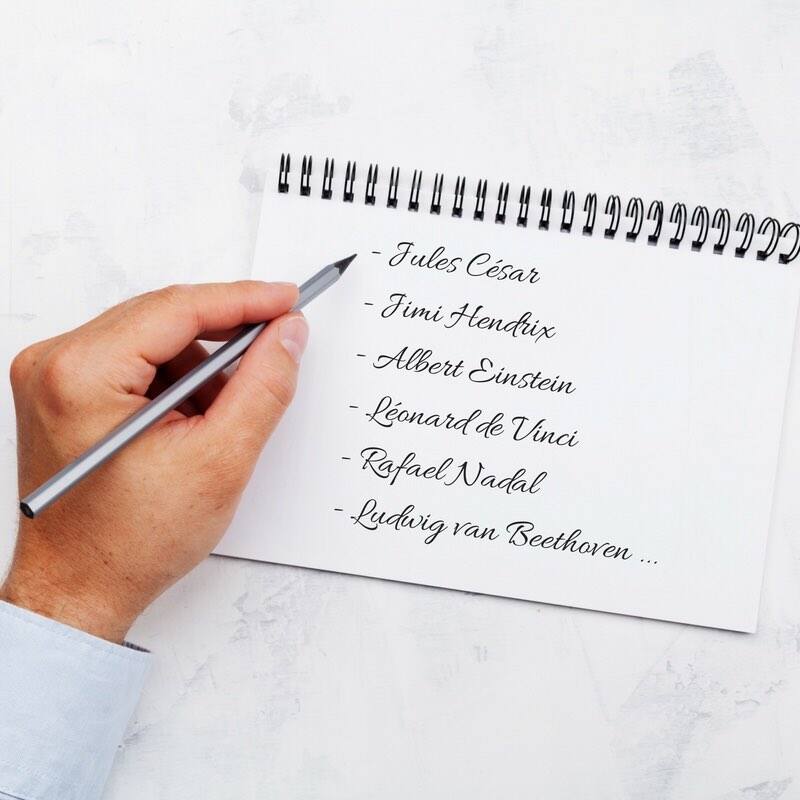 - Jules César
- Jimi Hendrix
- Albert Einstein
- Léonard de Vinci
- Rafael Nadal
- Ludwig van Beethoven ...